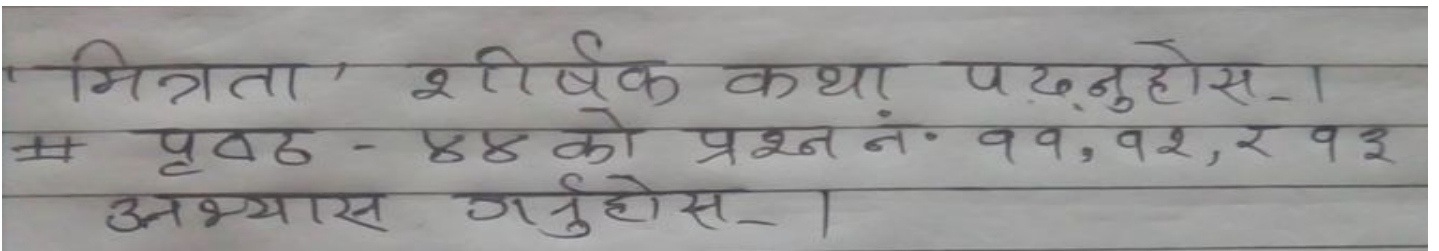 'मित्रता' शीर्षक कथा पढ्नुहोस् ।
# पृष्ठ - ४४ को प्रश्न नं. ११, १२, र १३
अभ्यास गर्नुहोस् ।